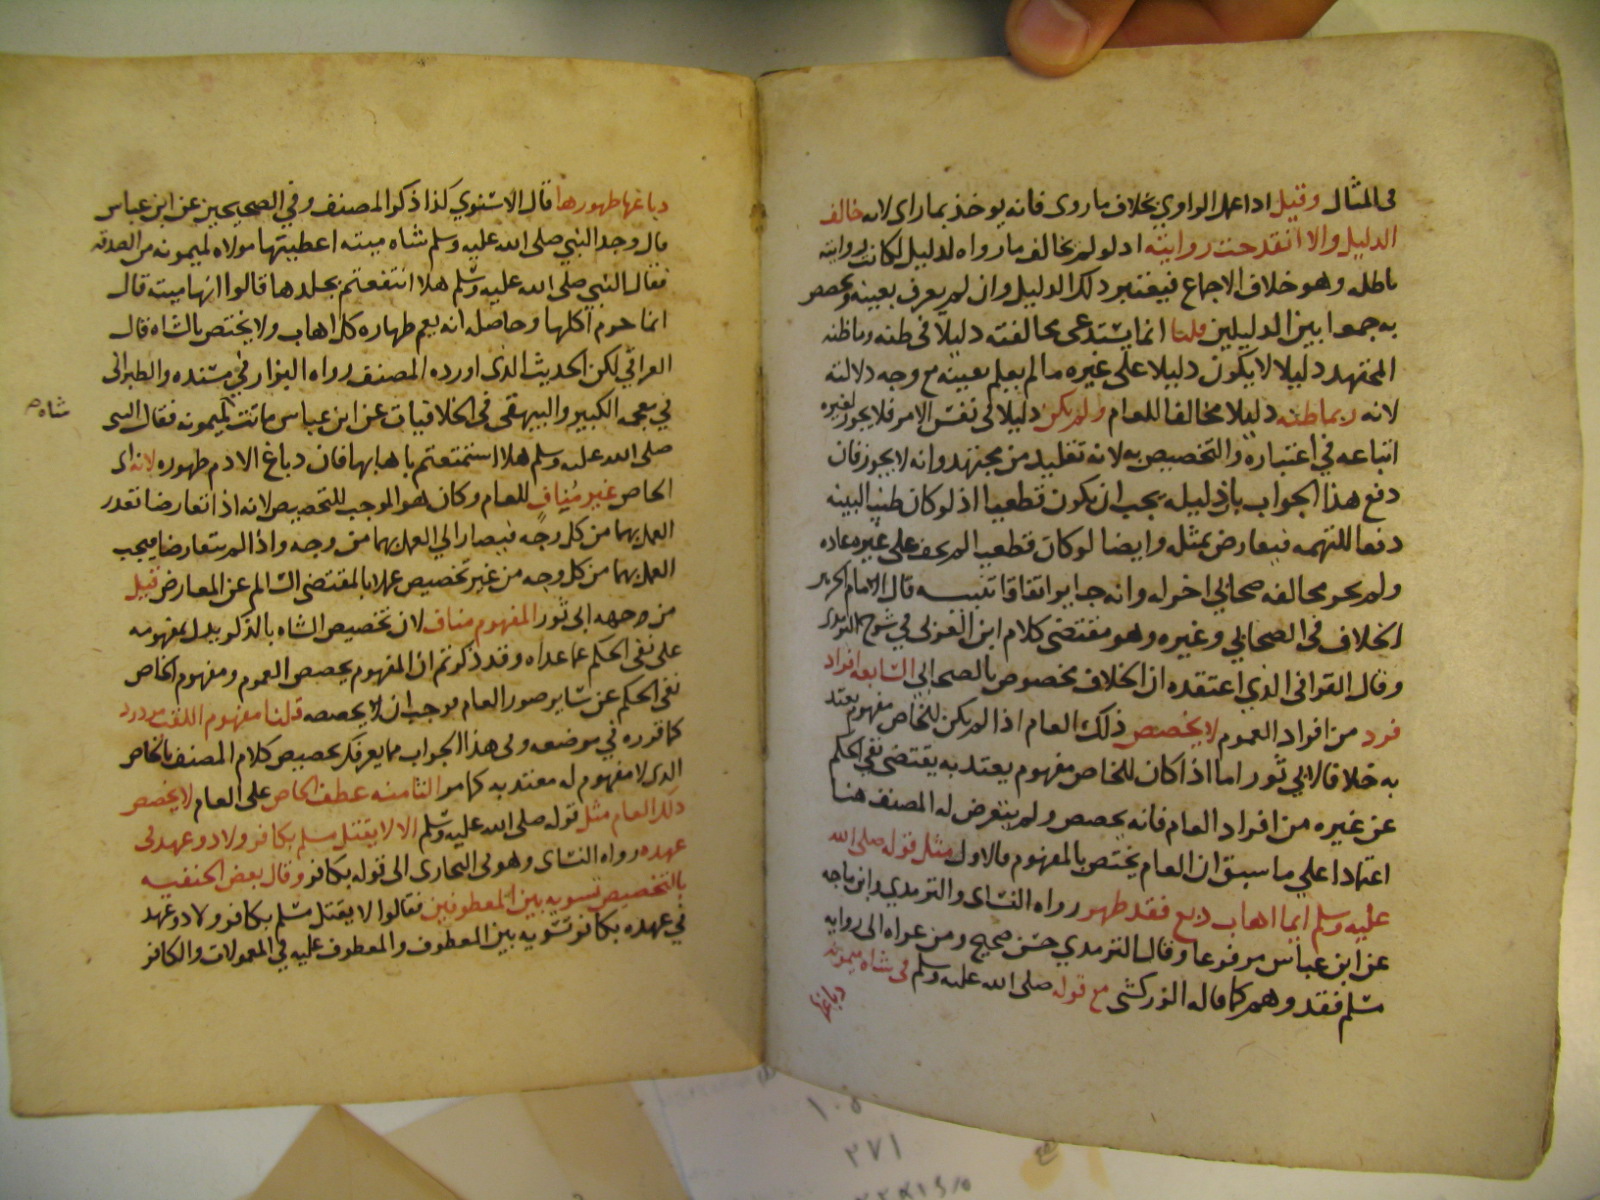 في المثال وقيل اذا عمل الراوي بخلاف ما روى فانه يوخذ بما راى لانه خالف
الدليل والا انقدحت روايته اذ لو لم يخالف ما رواه لدليل لكانت روايته
باطله وهو خلاف الاجماع فيعتبر ذلك الدليل وان لم يعرف بعينه ويخصص
به جمعا بين الدليلين قلنا انما يستدعي مخالفته دليلا في ظنه وما ظنه
المجتهد دليلا لا يكون دليلا على غيره ما لم يعلم بعينه مع وجه دلالته
لانه ربما ظنه دليلا مخالفا للعام ولم يكن دليلا في نفس الامر فلا يجوز لغيره
اتباعه في اعتباره والتخصيص به لانه تقليد من مجتهد وانه لا يجوز فان
دفع هذا الجواب بان دليله يجب ان يكون قطعيا اذ لو كان ظنيا لبينه
دفعا للتهمه فيعارض بمثله وايضا لو كان قطعيا لم يخف على غيره عاده
ولم يجز مخالفه صحابي اخر له وانه جايز اتفاقا تنبيه قال الامام
الخلاف في الصحابي وغيره وهو مقتضى كلام ابن العربي في شرح الترمذي
وقال القرافي الذي اعتقده ان الخلاف مخصوص بالصحابي السابعه افراد
فرد من افراد العموم لا يخصص ذلك العام اذا لم يكن للخاص مفهوم يعتد
به خلافا لابي ثور اما اذا كان للخاص مفهوم يعتد به يقتضي نفي الحكم
عن غيره من افراد العام فانه يخصص ولم يتعرض له المصنف هنا
اعتمادا علي ما سبق ان العام يختص بالمفهوم فالاول مثل قوله صلى الله
عليه وسلم ايما اهاب دبغ فقد طهر رواه النساي والترمذي وابن ماجه
عن ابن عباس مرفوعا وقال الترمذي حسن صحيح ومن عزاه الى روايه
مسلم فقد وهم كما قاله الزركشي مع قوله صلى الله عليه وسلم في شاه ميمونه
دباغها
دباغها طهورها قال الاسنوي كذا ذكره المصنف وفي الصحيحين عن ابن عباس
قال وجد النبي صلى الله عليه وسلم شاه ميته اعطيتها مولاه لميمونه من الصدقه
فقال النبي صلى الله عليه وسلم هلا انتفعتم بجلدها قالوا انها ميته قال
انما حرم اكلها وحاصله انه يعم طهاره كل اهاب ولا يختص بالشاه قال
العراقي لكن الحديث الذي اورده المصنف رواه البزار في مسنده والطبراني
في معجمه الكبير والبيهقي في الخلافيات عن ابن عباس ماتت لميمونه فقال النبي
شاه
صلى الله عليه وسلم هلا استمتعتم باهابها فان دباغ الادم طهوره لانه اى
الخاص غير مناف للعام وكان هو الموجب للتخصيص لانه اذا تعارضا تعذر
العمل بهما من كل وجه فيصار الي العمل بهما من وجه واذا لم يتعارضا فيجب
العمل بهما من كل وجه من غير تخصيص عملا بالمقتضى السالم عن المعارض قيل
من جهه ابى ثور المفهوم مناف لان تخصيص الشاه بالذكر يدل بمفهومه
على نفى الحكم عما عداه وقد ذكرتم ان المفهوم يخصص العموم ومفهوم الخاص
نفى الحكم عن ساير صور العام فوجب ان يخصصه قلنا مفهوم اللقب مردود
كما قرره في موضعه وفي هذا الجواب ما يعرفك تخصيص كلام المصنف بالخاص
الذى لا مفهوم له معتد به كما مر الثامنه عطف الخاص على العام لا يخصص
ذلك العام مثل قوله صلى الله عليه وسلم الا لا يقتل مسلم بكافر ولا ذو عهد في
عهده رواه النساى وهو في البخارى الى قوله بكافر وقال بعض الحنفيه
بالتخصيص تسويه بين المعطوفين فقالوا لا يقتل مسلم بكافر ولا ذو عهد
في عهده بكافر تسويه بين المعطوف والمعطوف عليه في المعمولات والكافر
٣٧١